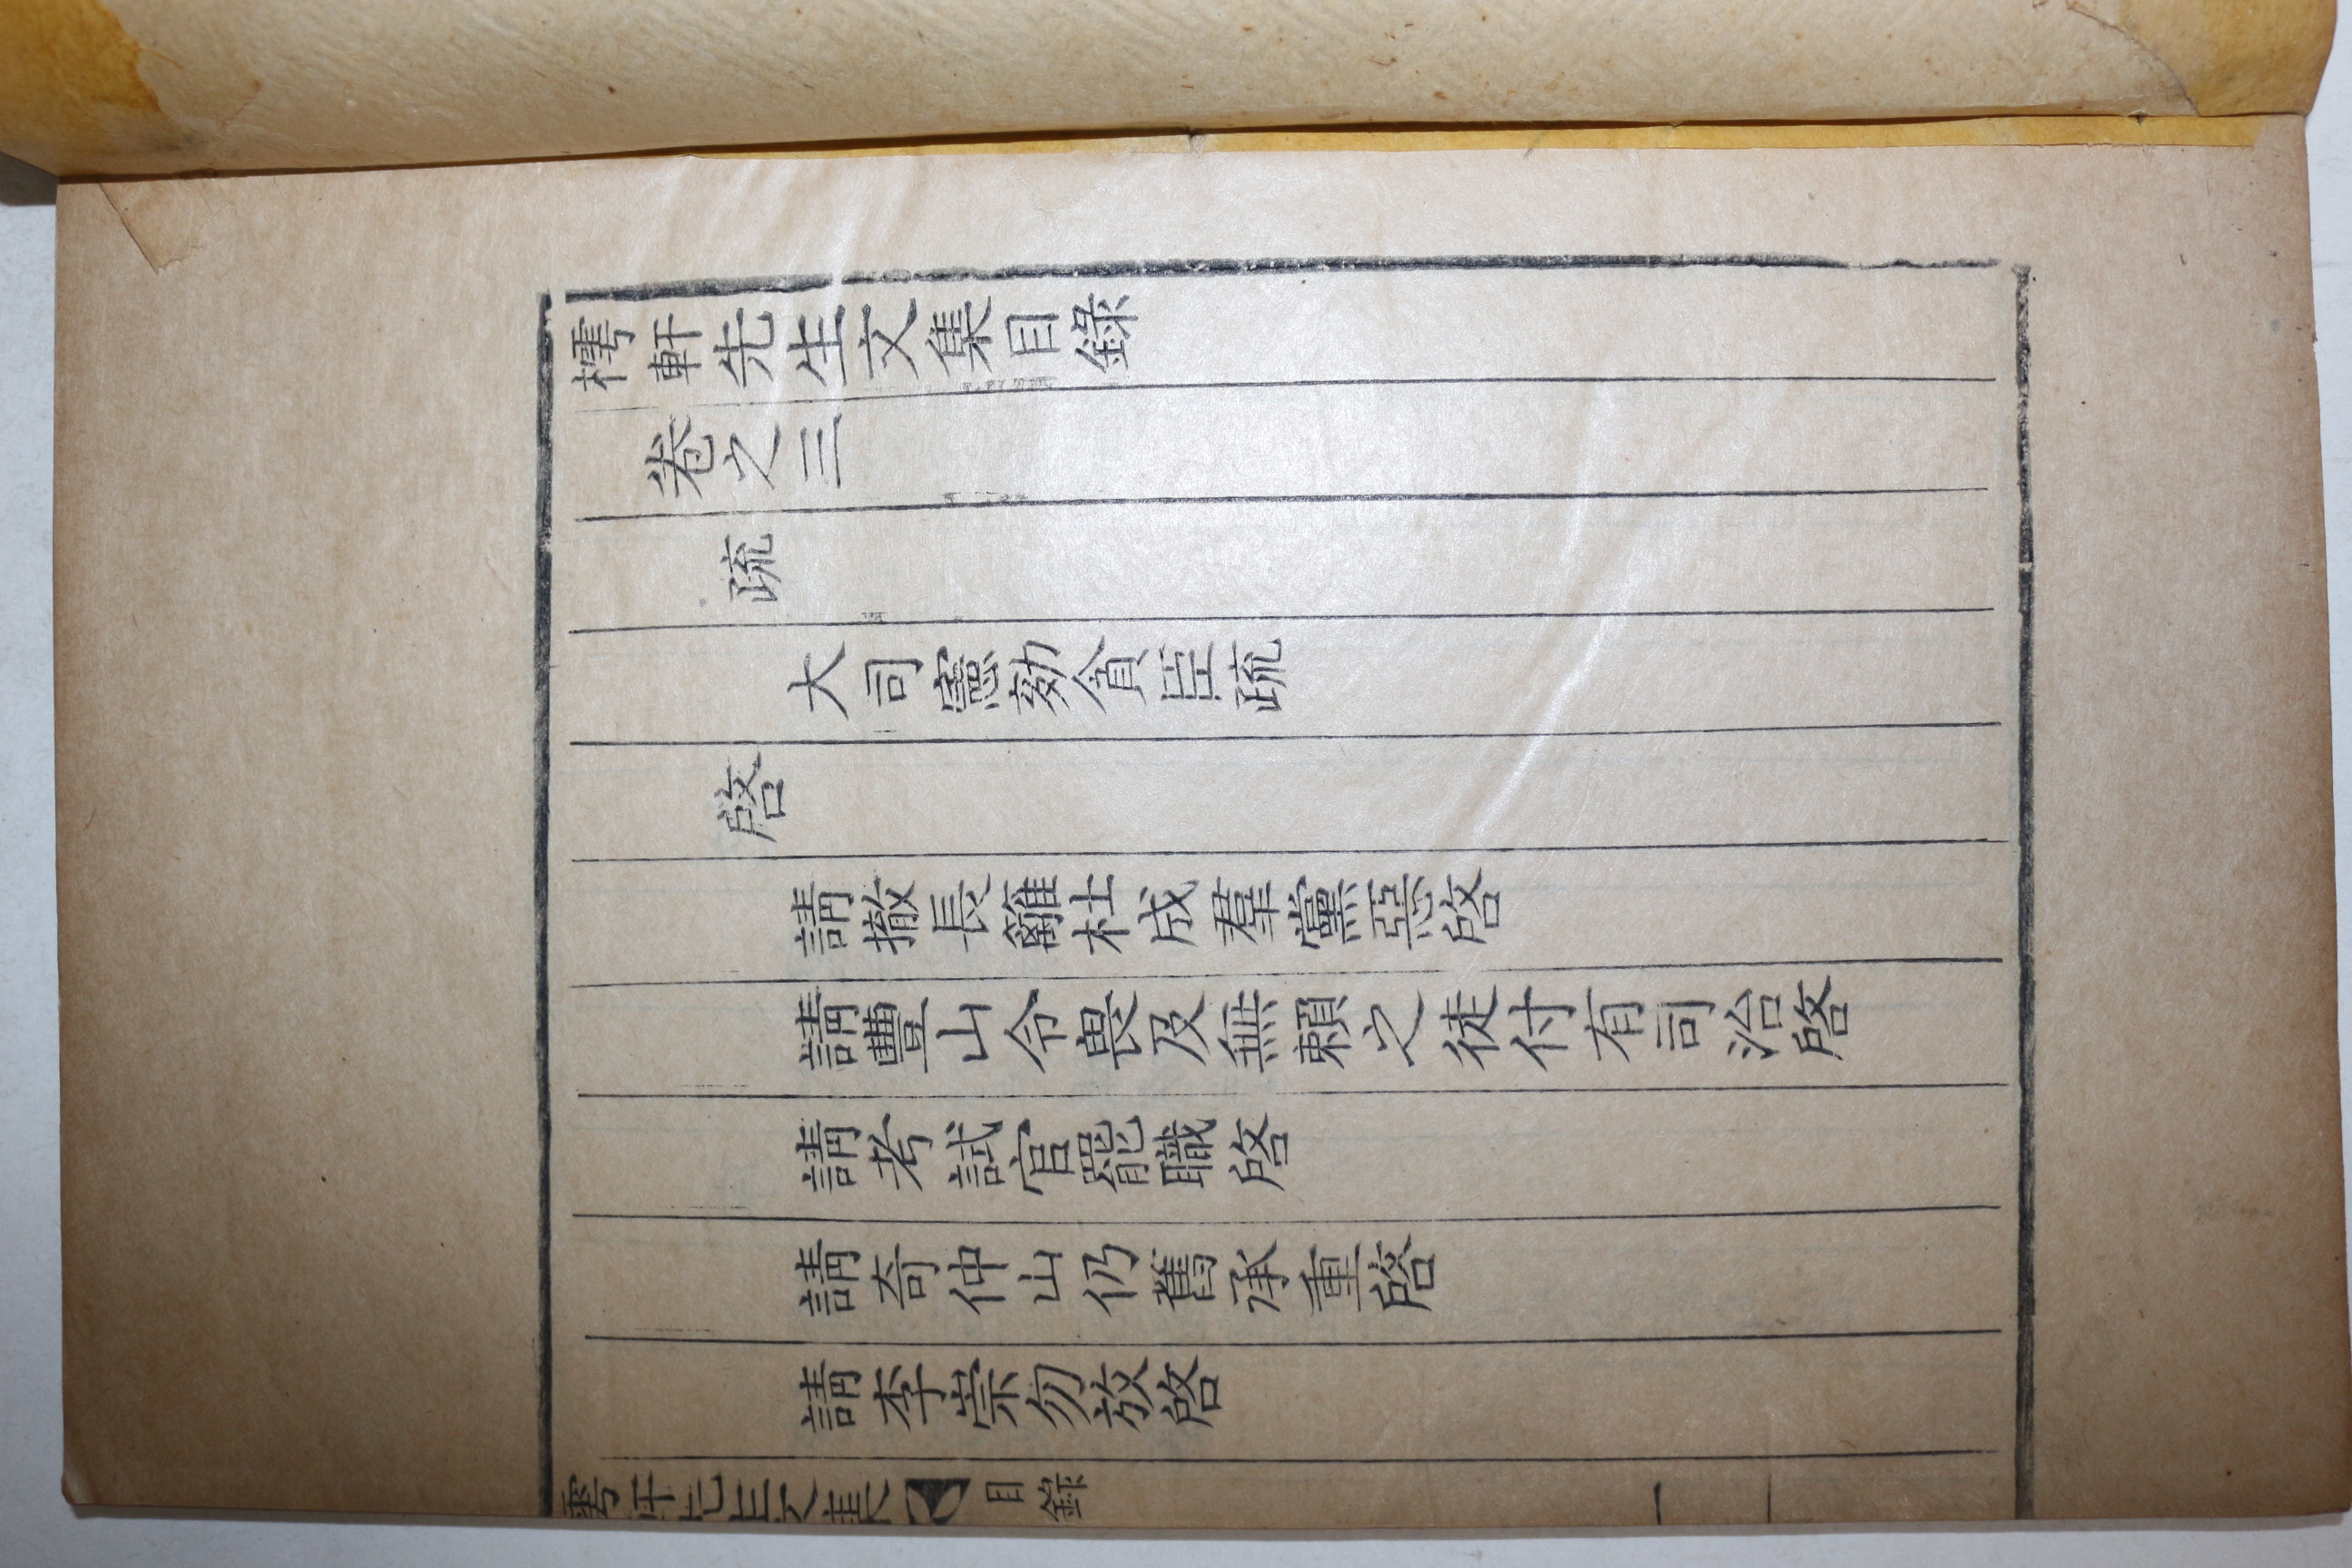 樗軒先生文集目錄
卷之三
疏
大司憲劾貪臣疏
啓
請撤長籬杜成羣黨惡啓
請豊山令畏及無賴之徒付有司治啓
請考試官罷職啓
請奇仲山仍舊承重啓
請李崇勿放啓
樗軒先生文集 目錄 一